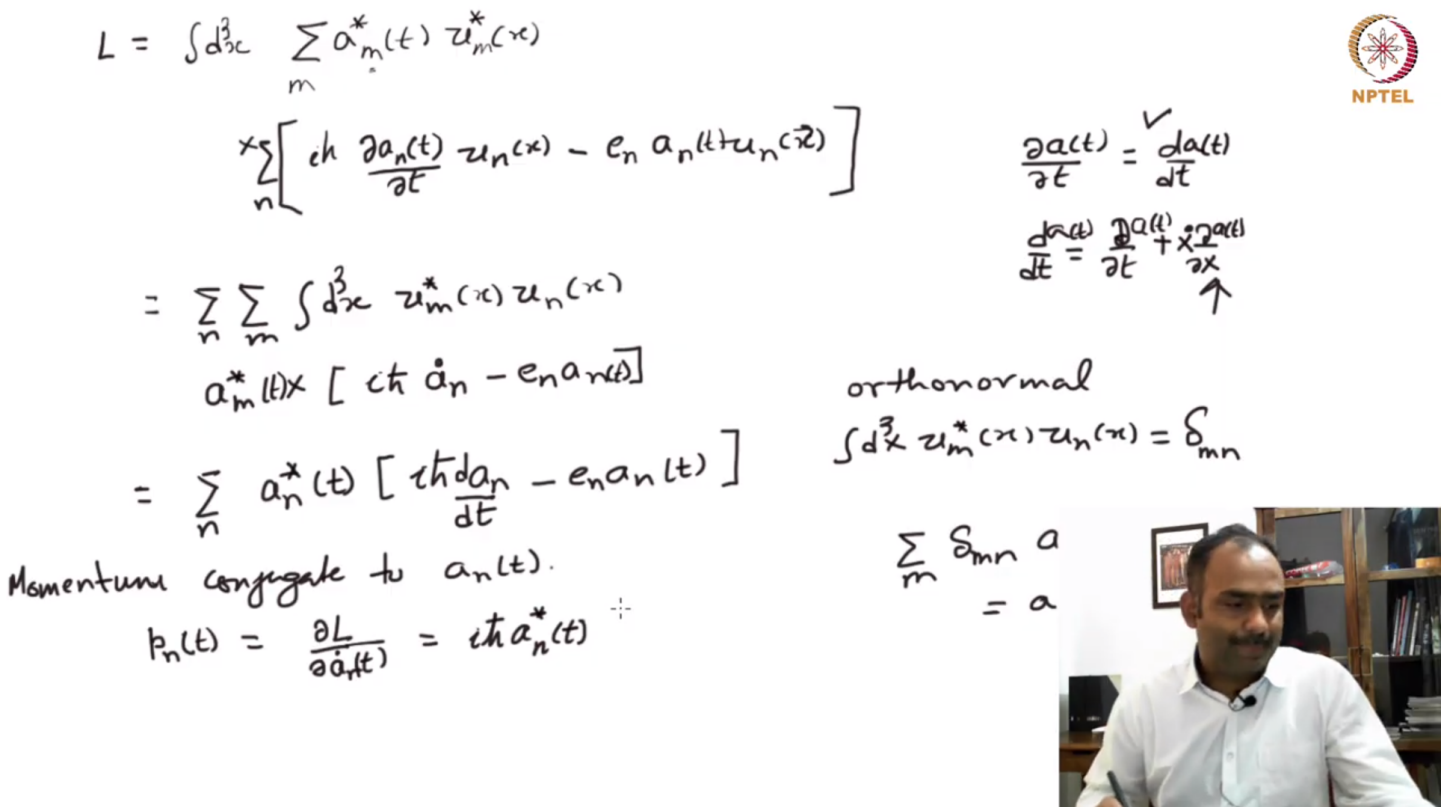 L = ∫d³x ∑ₘ a*ₘ(t) u*ₘ(x)
× ∑ₙ [ iħ ∂aₙ(t)/∂t uₙ(x) − eₙ aₙ(t) uₙ(x⃗) ]
= ∑ₙ ∑ₘ ∫d³x u*ₘ(x) uₙ(x)
a*ₘ(t) × [ iħ ȧₙ − eₙ aₙ(t) ]
= ∑ₙ a*ₙ(t) [ iħ daₙ/dt − eₙ aₙ(t) ]
Momentum conjugate to aₙ(t).
pₙ(t) = ∂L/∂ȧₙ(t) = iħ a*ₙ(t)
NPTEL
∂a(t)/∂t = da(t)/dt ✓
da(t)/dt = ∂a(t)/∂t + ẋ ∂a(t)/∂x
↑
orthonormal
∫d³x u*ₘ(x) uₙ(x) = δₘₙ
∑ₘ δₘₙ a
= a